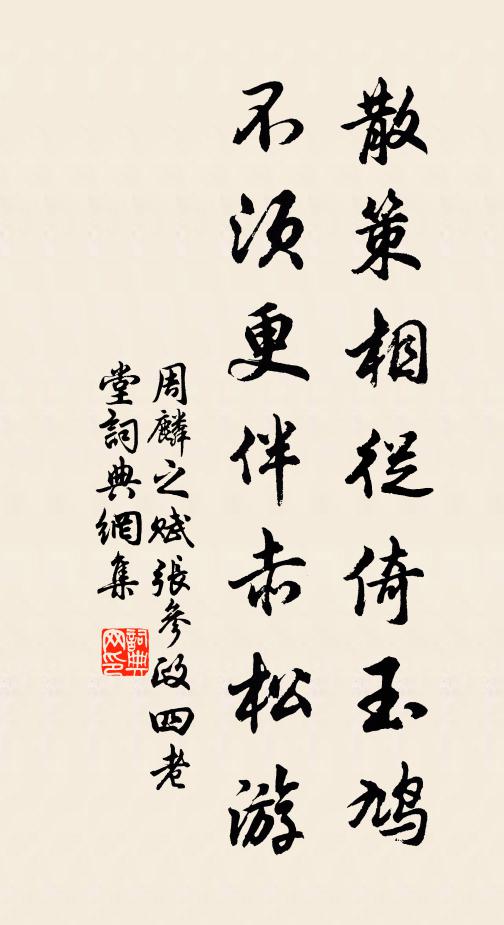 散策相從倚玉鳩
不須更伴赤松游
周麟之賦張參政四老
堂詞典網集
詞典网印